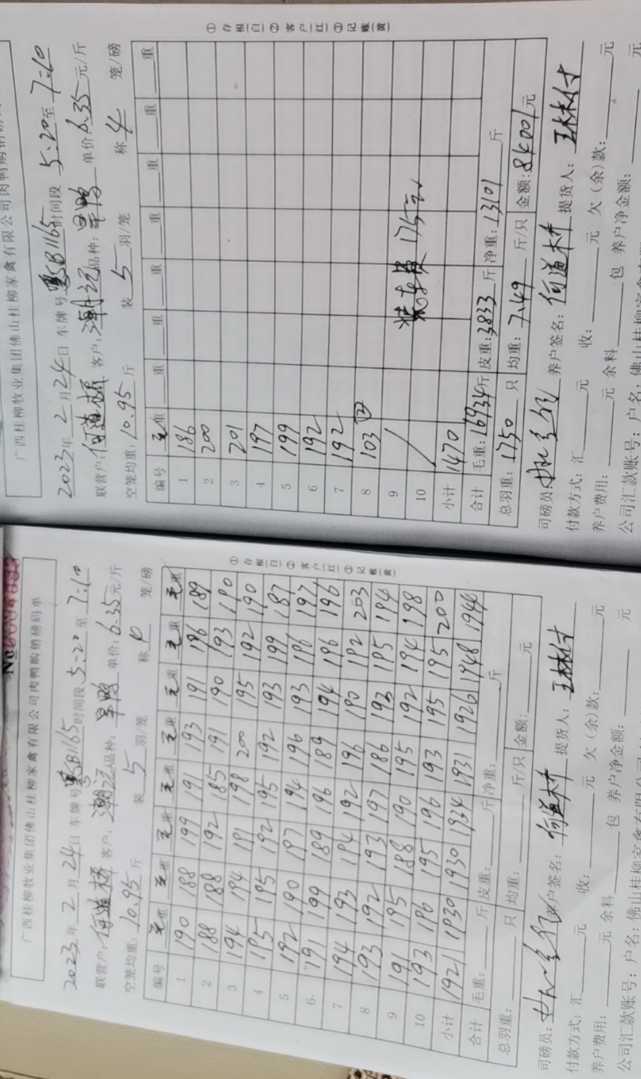 广西桂柳牧业集团佛山桂柳家禽有限公司肉鸭购销磅码单
2023年2月24日 车牌号粤SB1165时间段5:20至7:10
联营户:何道桥 客户:潮记 品种:旱鸭 单价:6.35元/斤
空笼均重:10.95斤 装5羽/笼 称10笼/磅
编号 毛重 毛重 毛重 毛重 毛重 毛重 毛重 毛重
1 190 188 199 191 193 191 196 189
2 188 188 192 185 191 190 193 190
3 194 194 191 198 200 195 192 190
4 195 195 192 195 192 193 199 187
5 192 190 197 194 196 193 196 197
6 191 199 189 196 189 194 196 196
7 194 193 194 192 196 190 192 203
8 193 192 193 197 186 193 195 194
9 191 195 188 190 195 192 194 198
10 193 196 195 196 193 195 195 200
小计 1921 1930 1930 1934 1931 1926 1948 1944
合计 毛重: 斤 皮重: 斤 净重: 斤
总羽重: 只 均重: 斤/只 金额: 元
司磅员: 养户签名:何道桥 提货人:
付款方式:汇 元 收: 元 欠(余)款: 元
养户费用: 元 余料 包 养户净金额: 元
①存根(白)②客户(红)③记账(黄)
广西桂柳牧业集团佛山桂柳家禽有限公司肉鸭购销
2023年2月24日 车牌号粤SB1165时间段5:20至7:10
联营户:何道桥 客户:潮记 品种:旱鸭 单价6.35元/斤
空笼均重:10.95斤 装5羽/笼 称4笼/磅
编号 毛重 重 重 重 重 重 重 重
1 186
2 200
3 201
4 197
5 199
6 192
7 192
8 103
9
10 装车费175元
小计 1470
合计 毛重:16934斤 皮重:3833斤 净重:13101斤
总羽重:1750只 均重:7.49斤/只 金额:84001元
司磅员: 养户签名:何道桥 提货人:
付款方式:汇 元 收: 元 欠(余)款: 元
养户费用: 元 余料 包 养户净金额: 元
公司汇款账号:户名:佛山桂柳
①存根(白)②客户(红)③记账(黄)